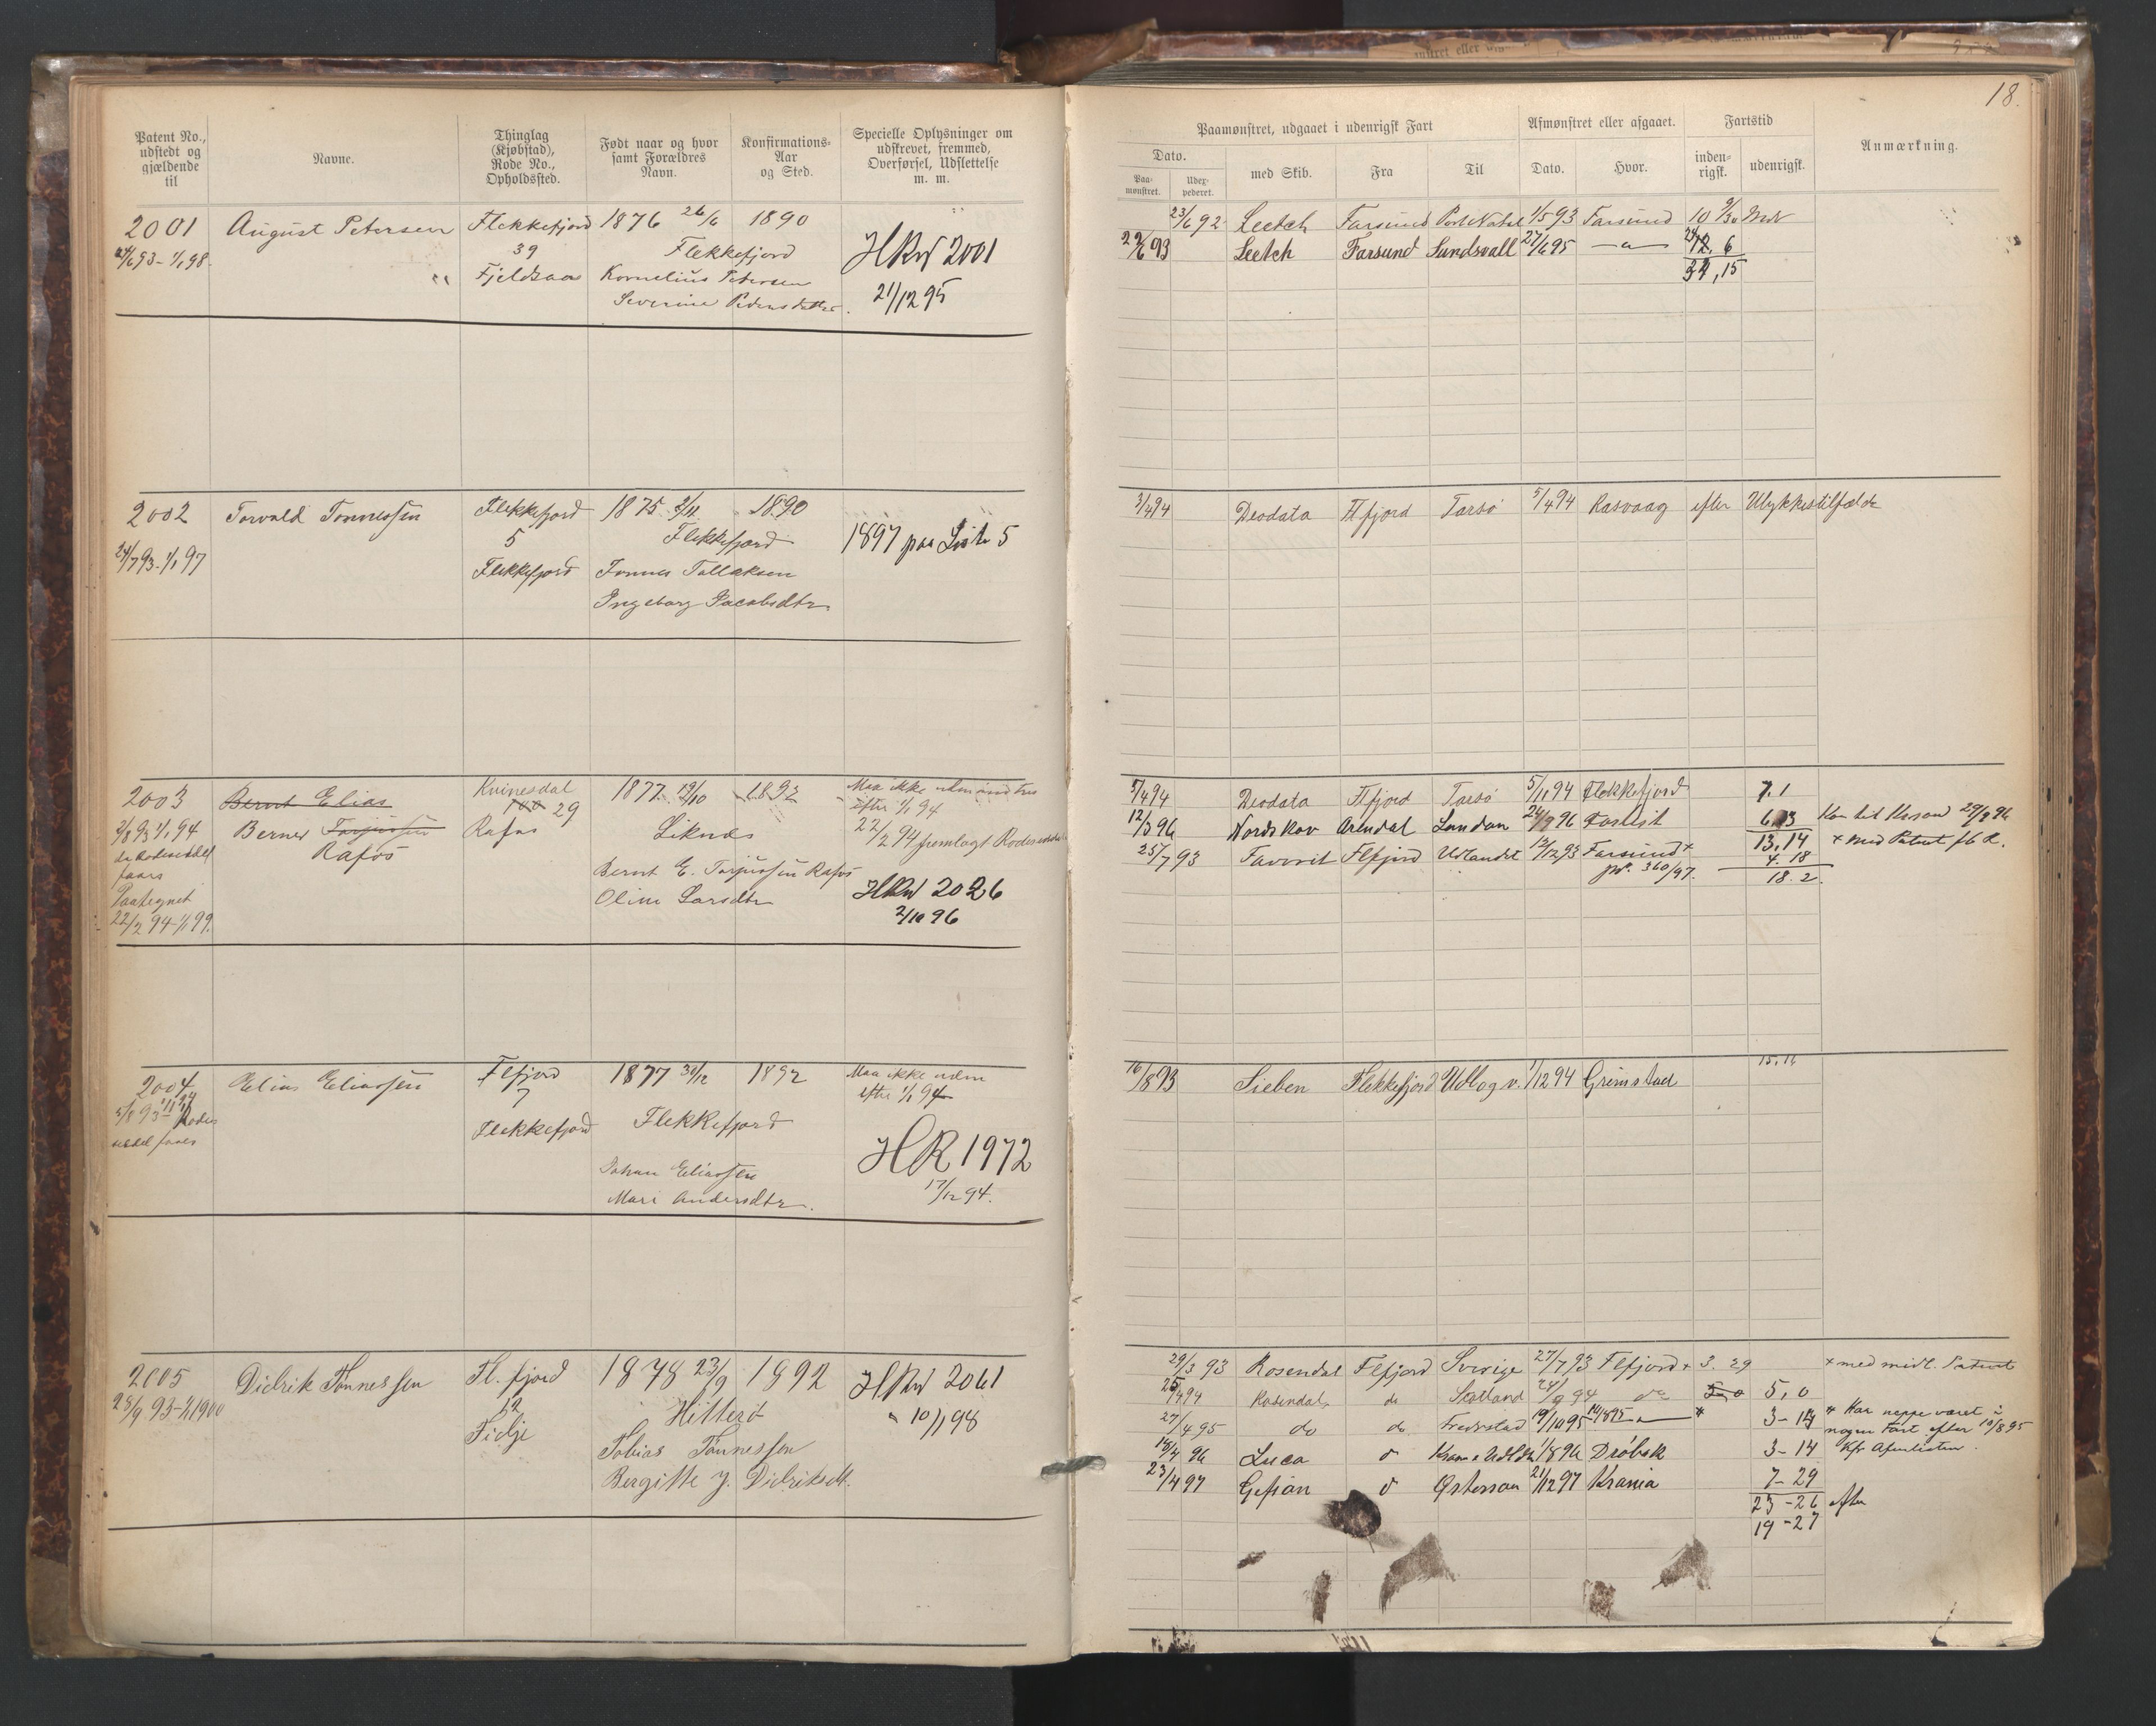 18.
Patent No., udstedt og gjældende til
Navne.
Thinglag (Kjøbstad), Rode No., Opholdssted.
Født naar og hvor samt Forældres Navn.
Konfirmations- Aar og Sted.
Specielle Oplysninger om udskrevet, fremmed, Overførsel, Udslettelse m. m.
Paamønstret, udgaaet i udenrigsk Fart
Afmønstret eller afgaaet.
Fartstid
Anmærkning.
Dato.
Paa- mønstret.
Udex- pederet.
med Skib.
Fra
Til
Dato.
Hvor.
inden- rigsk.
udenrigsk.
2001 August Petersen Flekkefjord 1876 26/6 1890
24/6 93 - 1/1 98. 39 Flekkefjord HRW 2001
Fjeldsaa Kornelius Petersen 21/12 95
Severine Pedersdatter.
23/6 92 Leetch Farsund Port Natal 1/5 93 Farsund 10 9/30 Mdr
22/6 93 Leetch Farsund Sundsvall 27/6 95 —"— 24, 6
34,15
2002 Torvald Tønnessen Flekkefjord 1875 3/11 1890
24/7 93 - 1/1 97 5 Flekkefjord 1897 paa Liste 5
Flekkefjord Tønnes Tollaksen
Ingeborg Jacobsdtr.
3/4 94 Deodata Flfjord Tarsø 5/4 94 Rasvaag efter Ulykkestilfælde
2003 Bernt Elias Kvinesdal 1877 19/10 1892 Maa ikke udmønstres
2/8 93 1/1 94 Berner Torjussen 100 29 efter 1/1 94
Rafos Rafos Liknes 22/2 94 fremlagt Rodeseddel
faaes Bernt E. Torjussen Rafos
Paategnet Oline Larsdtr HRW 2026
22/2 94 - 1/1 99. 2/10 96
5/4 94 Deodata Flfjord Tarsø 5/11 94 Flekkefjord 7.1
12/3 96 Nordskov Arendal London 24/9 96 6 13 Kom hit Krsand 29/9 96
25/7 93 Favorit Flfjord Udlandet 12/12 93 Farsund x 13,14 x med Patent
pr. 360/97. 4.18
18.2.
2004 Elias Eliassen Flfjord 1877 30/12 1892 Maa ikke udm
5/8 93 - 1/1 94 7 efter 1/1 94
Rodeseddel faaes Flekkefjord Flekkefjord
HR 1972
Johan Eliassen 17/12 94.
Mari Andersdtr.
16/8 93 Sieben Flekkefjord Udl og v. 1/12 94 Grimstad 15,16
2005 Didrik Tønnessen Fl.fjord 1878 23/9 1892 HRW 2061
23/9 93 - 1/1 1900 12 Hitterø 10/1 98
Fidje Tobias Tønnessen
Bergitte J. Didriksdt.
29/3 93 Rosendal Flfjord Sverige 27/7 93 Flfjord x 3. 29 x med midl. Patent
25/4 94 Rosendal do Skotland 24/9 94 do 5,0
27/4 95 do do Fredrstad 19/10 95 10/8 95 —"— * 3-14 * Har neppe været i
nogen Fart efter 10/8 95
18/4 96 Luca do 1/8 96 Drøbak 3-14 Kfr Afmlisten.
23/4 97 Gefion do Østersøen 21/12 97 Krania 7-29
23-26 efter
19-27